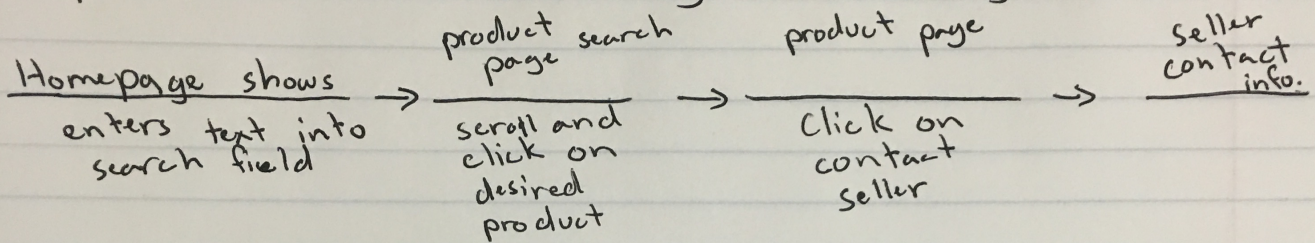 Homepage shows
enters text into
search field
→
product
page search
scroll and
click on
desired
product
→
product page
Click on
contact
seller
→
seller
contact
info.